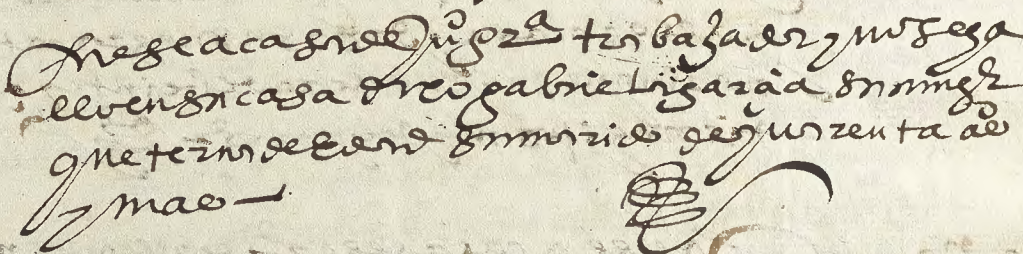 fuese a casa de Juº grª trabaxador y no se ha
llo en su casa dixo gabriela garcia su muger
que terna de hedad su marido de quarenta aº
y mas